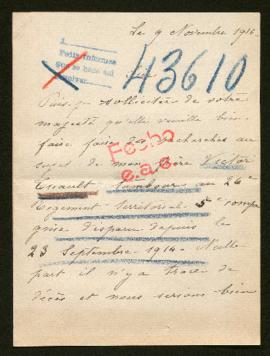 Le 9 Novembre 1916.
A
Petit informes
que se haga al
43610
Sire
Puis-je solliciter de votre
majesté qu'elle veuille bien
faire faire des recherches au
sujet de mon frère Victor
Tambour au 26e
Regiment territorial 5e comp
disparu depuis le
23 Septembre 1914. Nulle
part il n'y a trace de
décès et nous serions bien
Fecho
e.a.c.